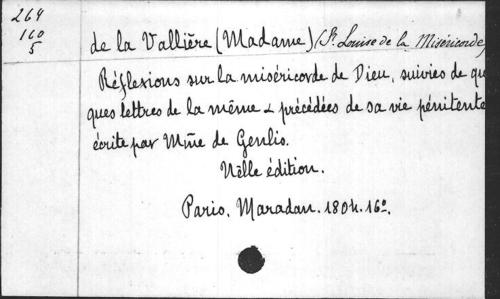 264
160
5
de la Vallière (Madame) (Sr. Louise de la Miséricorde)
Réflexions sur la miséricorde de Dieu, suivies de quel
ques lettres de la même & précédées de sa vie pénitente
écrite par Mme de Genlis.
Nelle édition.
Paris. Maradan. 1804. 16o.